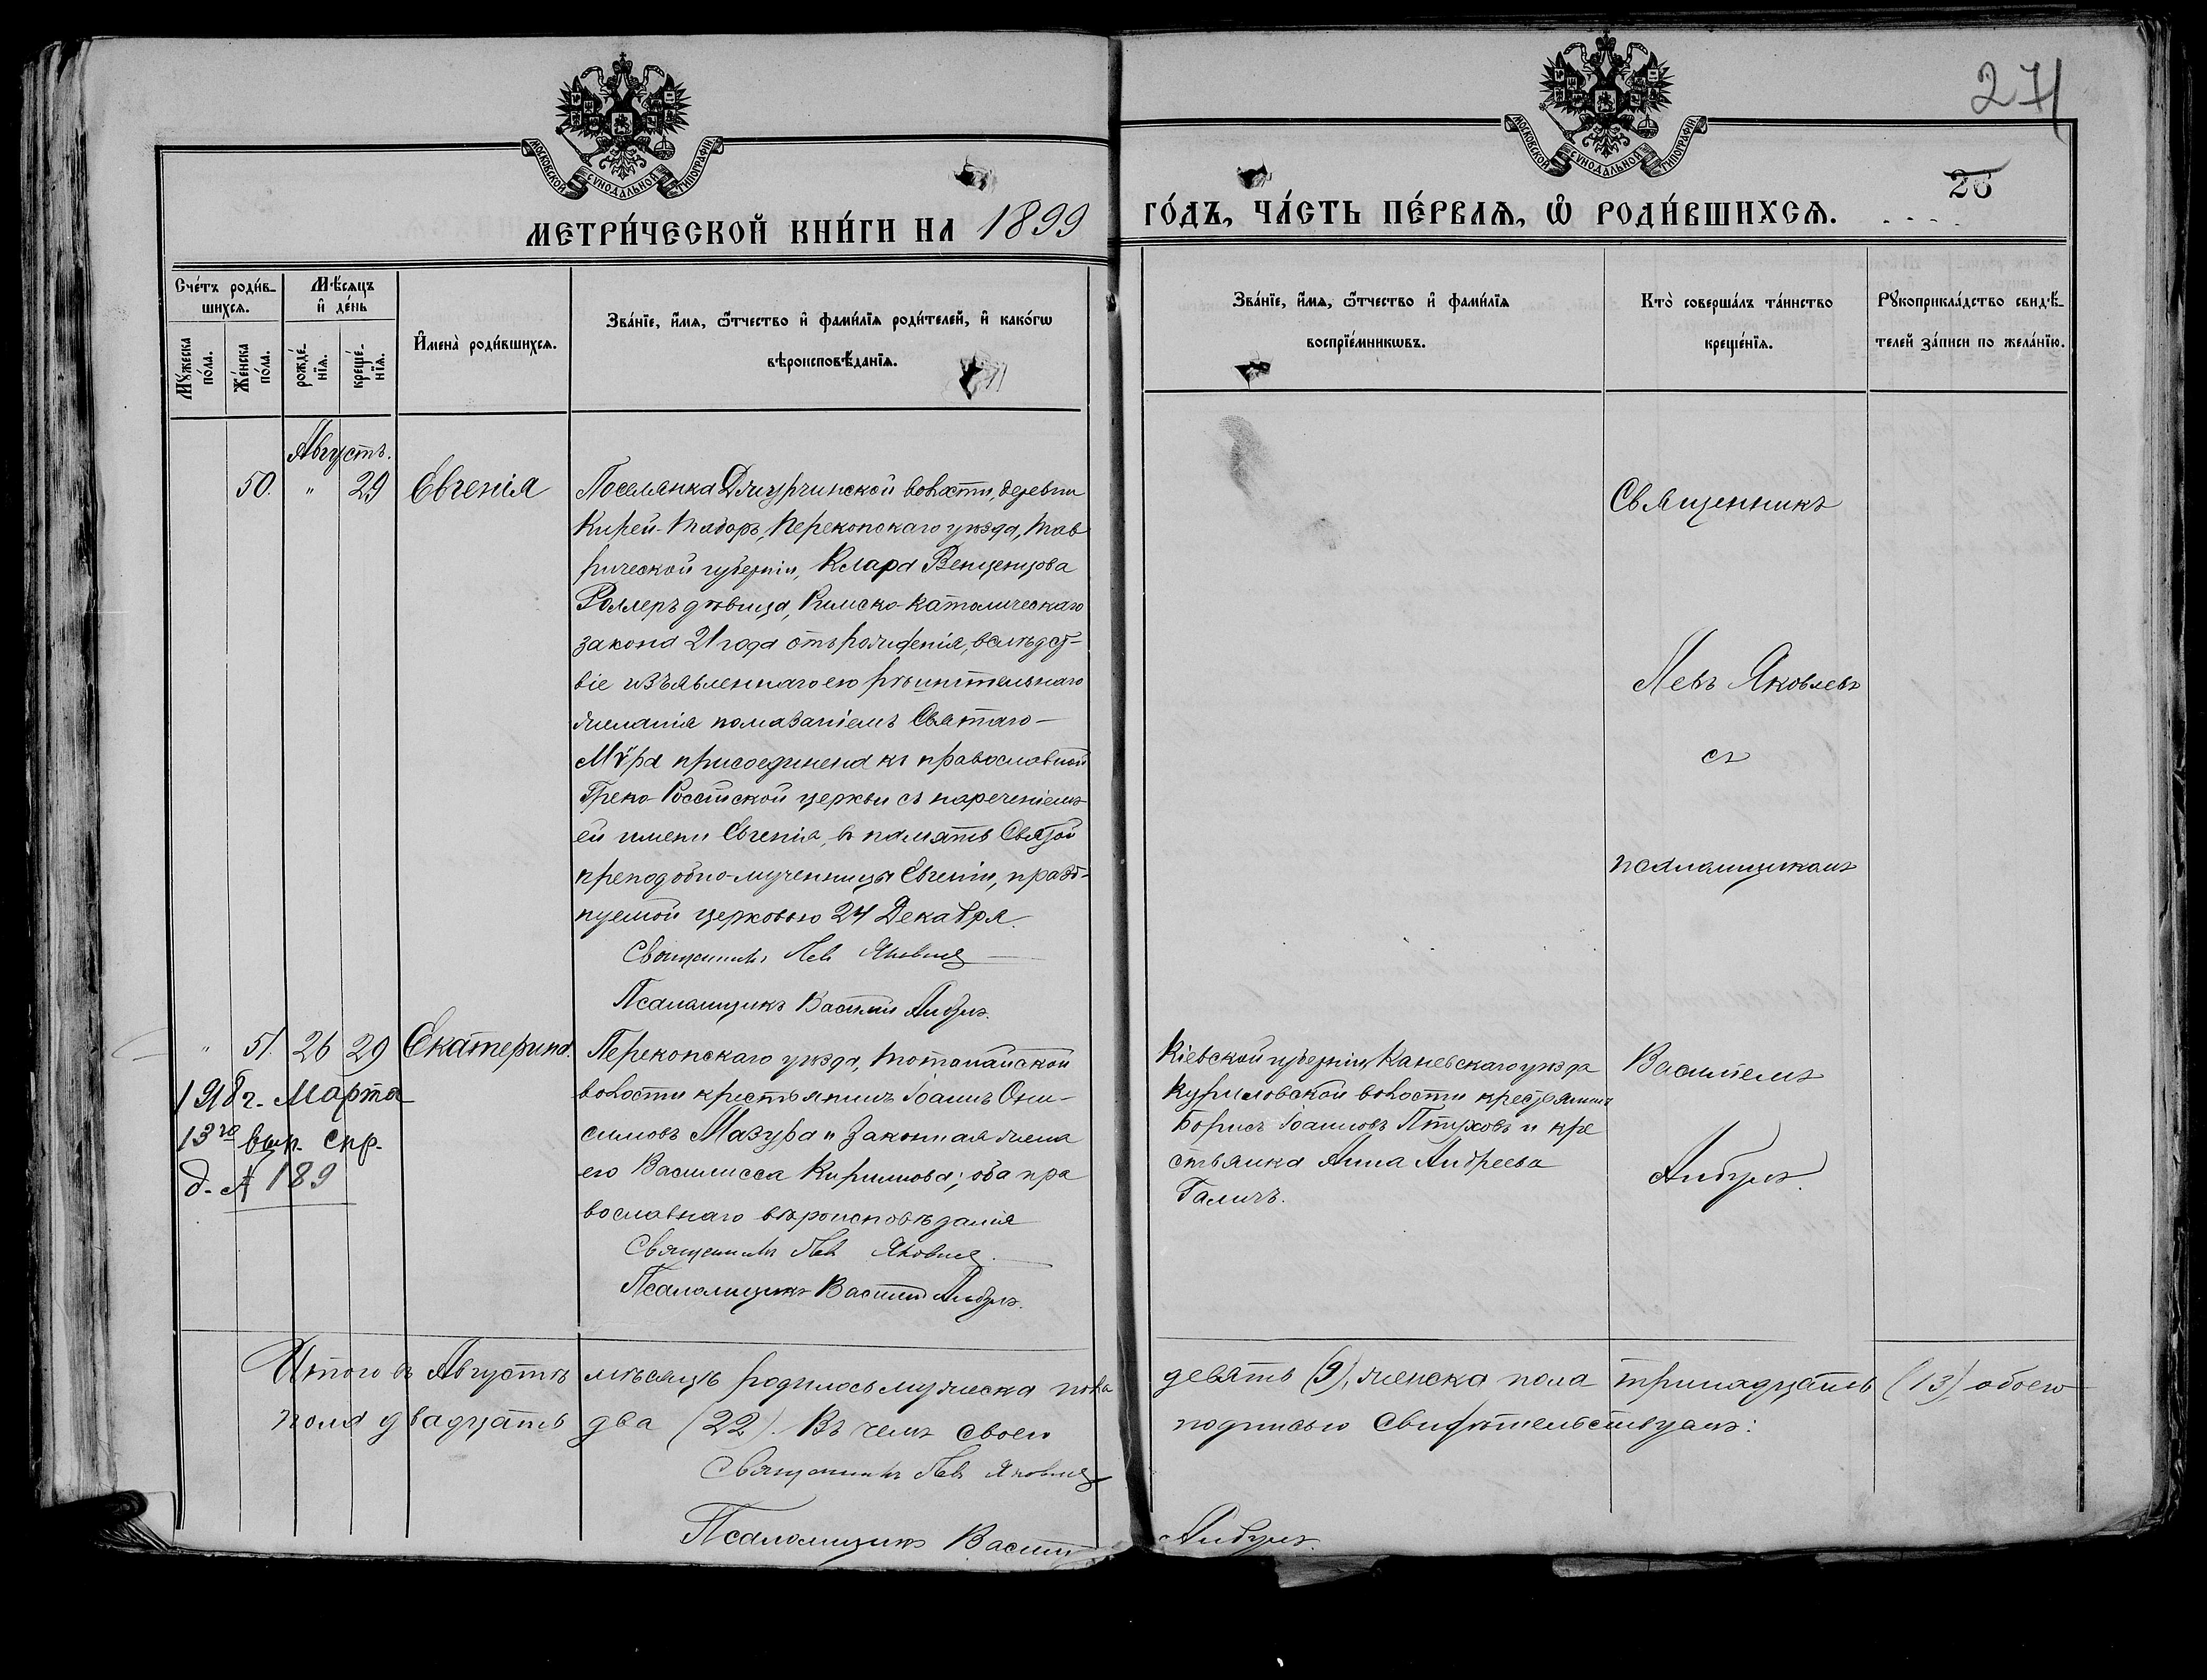 271
26
МОСКОВСКОЙ СУНОДАЛЬНОЙ ТИПОГРАФІИ
МОСКОВСКОЙ СУНОДАЛЬНОЙ ТИПОГРАФІИ
МЕТРИ́ЧЕСКОЙ КНИ́ГИ НА 1899 ГО́ДЪ, ЧА́СТЬ ПЕ́РВАѦ, Ѡ҆ РОДИ́ВШИХСѦ.
Сче́тъ роди́вшихсѧ.
Му́жеска по́ла.
Же́нска по́ла.
Мѣ́сѧцъ и҆ де́нь
рожде́нїѧ.
креще́нїѧ.
И҆мена̀ роди́вшихсѧ.
Зва́нїе, и҆́мѧ, ѻ҆́тчество и҆ фами́лїѧ роди́телей, и҆ како́гѡ
вѣроисповѣ́данїѧ.
Зва́нїе, и҆́мѧ, ѻ҆́тчество и҆ фами́лїѧ
воспрїе́мникѡвъ.
Кто̀ соверша́лъ та́инство
креще́нїѧ.
Рꙋкоприкла́дство свидѣ́-
телей за́писи по жела́нїю.
Августъ.
50. " 29 Евгенія
Поселянка Джурчинской волости, деревни
Кирей-Татаръ, Перекопскаго уѣзда, Тав
рической губерніи, Клара Венценцова
Роллеръ дѣвица, Римско-Католическаго
закона 21 года отъ рожденія, вслѣдст-
віе изъявленнаго ею рѣшительнаго
желанія помазаніемъ Святаго
Мѵра присоединена къ православной
Греко-Россійской церкви съ нареченіемъ
ей имени Евгенія, въ память Святой
преподобно-мученницы Евгеніи, празд-
нуемой церковью 24 Декабря.
Священникъ Левъ Яковлев
Псаломщикъ Василій
Священникъ
Левъ Яковлевъ
съ
псаломщикомъ
" 51. 26 29 Екатерина.
Перекопскаго уѣзда, Тотонайской
волости крестьянинъ Іоаннъ Они-
симовъ Мазура и законная жена
его Василисса Кирилова; оба пра
вославнаго вѣроисповѣданія
Священникъ Левъ Яковлев
Псаломщикъ Василій
Кіевской губерніи, Каневскаго уѣзда
Куриловской волости крестьянинъ
Борисъ Іоанновъ Птуховъ и кре
стьянка Анна Андреева
Галичъ.
Василіемъ
1918 г. Марта
13го вып. спр.
д. № 189
Итого въ Августѣ мѣсяцѣ родилось мужеска пола девять (9), женска пола тринадцать (13), обоего
пола двадцать два (22). Въ чемъ своею подписью свидѣтельствуемъ:
Священникъ Левъ Яковлев
Псаломщикъ Василій